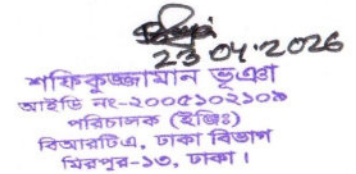 23 04.2026
শফিকুজ্জামান ভূঞা
আইডি নং-২০০৫১০২১০৯
পরিচালক (ইঞ্জিঃ)
বিআরটিএ, ঢাকা বিভাগ
মিরপুর-১৩, ঢাকা।